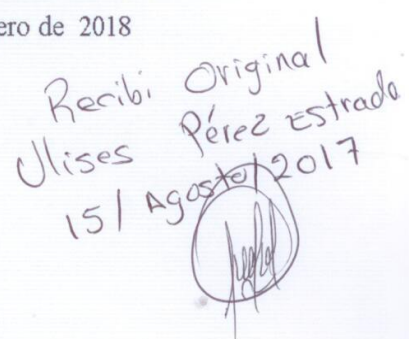 ero de 2018
Recibi Original
Ulises Pérez Estrada
15/Agosto/2017